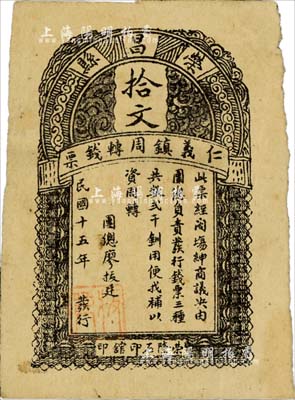 上海陽明拍賣
榮昌縣
拾文
仁義鎮周轉錢票
此票經商場紳商議決由
團總負責發行錢票三種
共錢二千釧用便找補以
資周轉
團總廖拔廷
民國十五年 發行
榮昌 石印館印